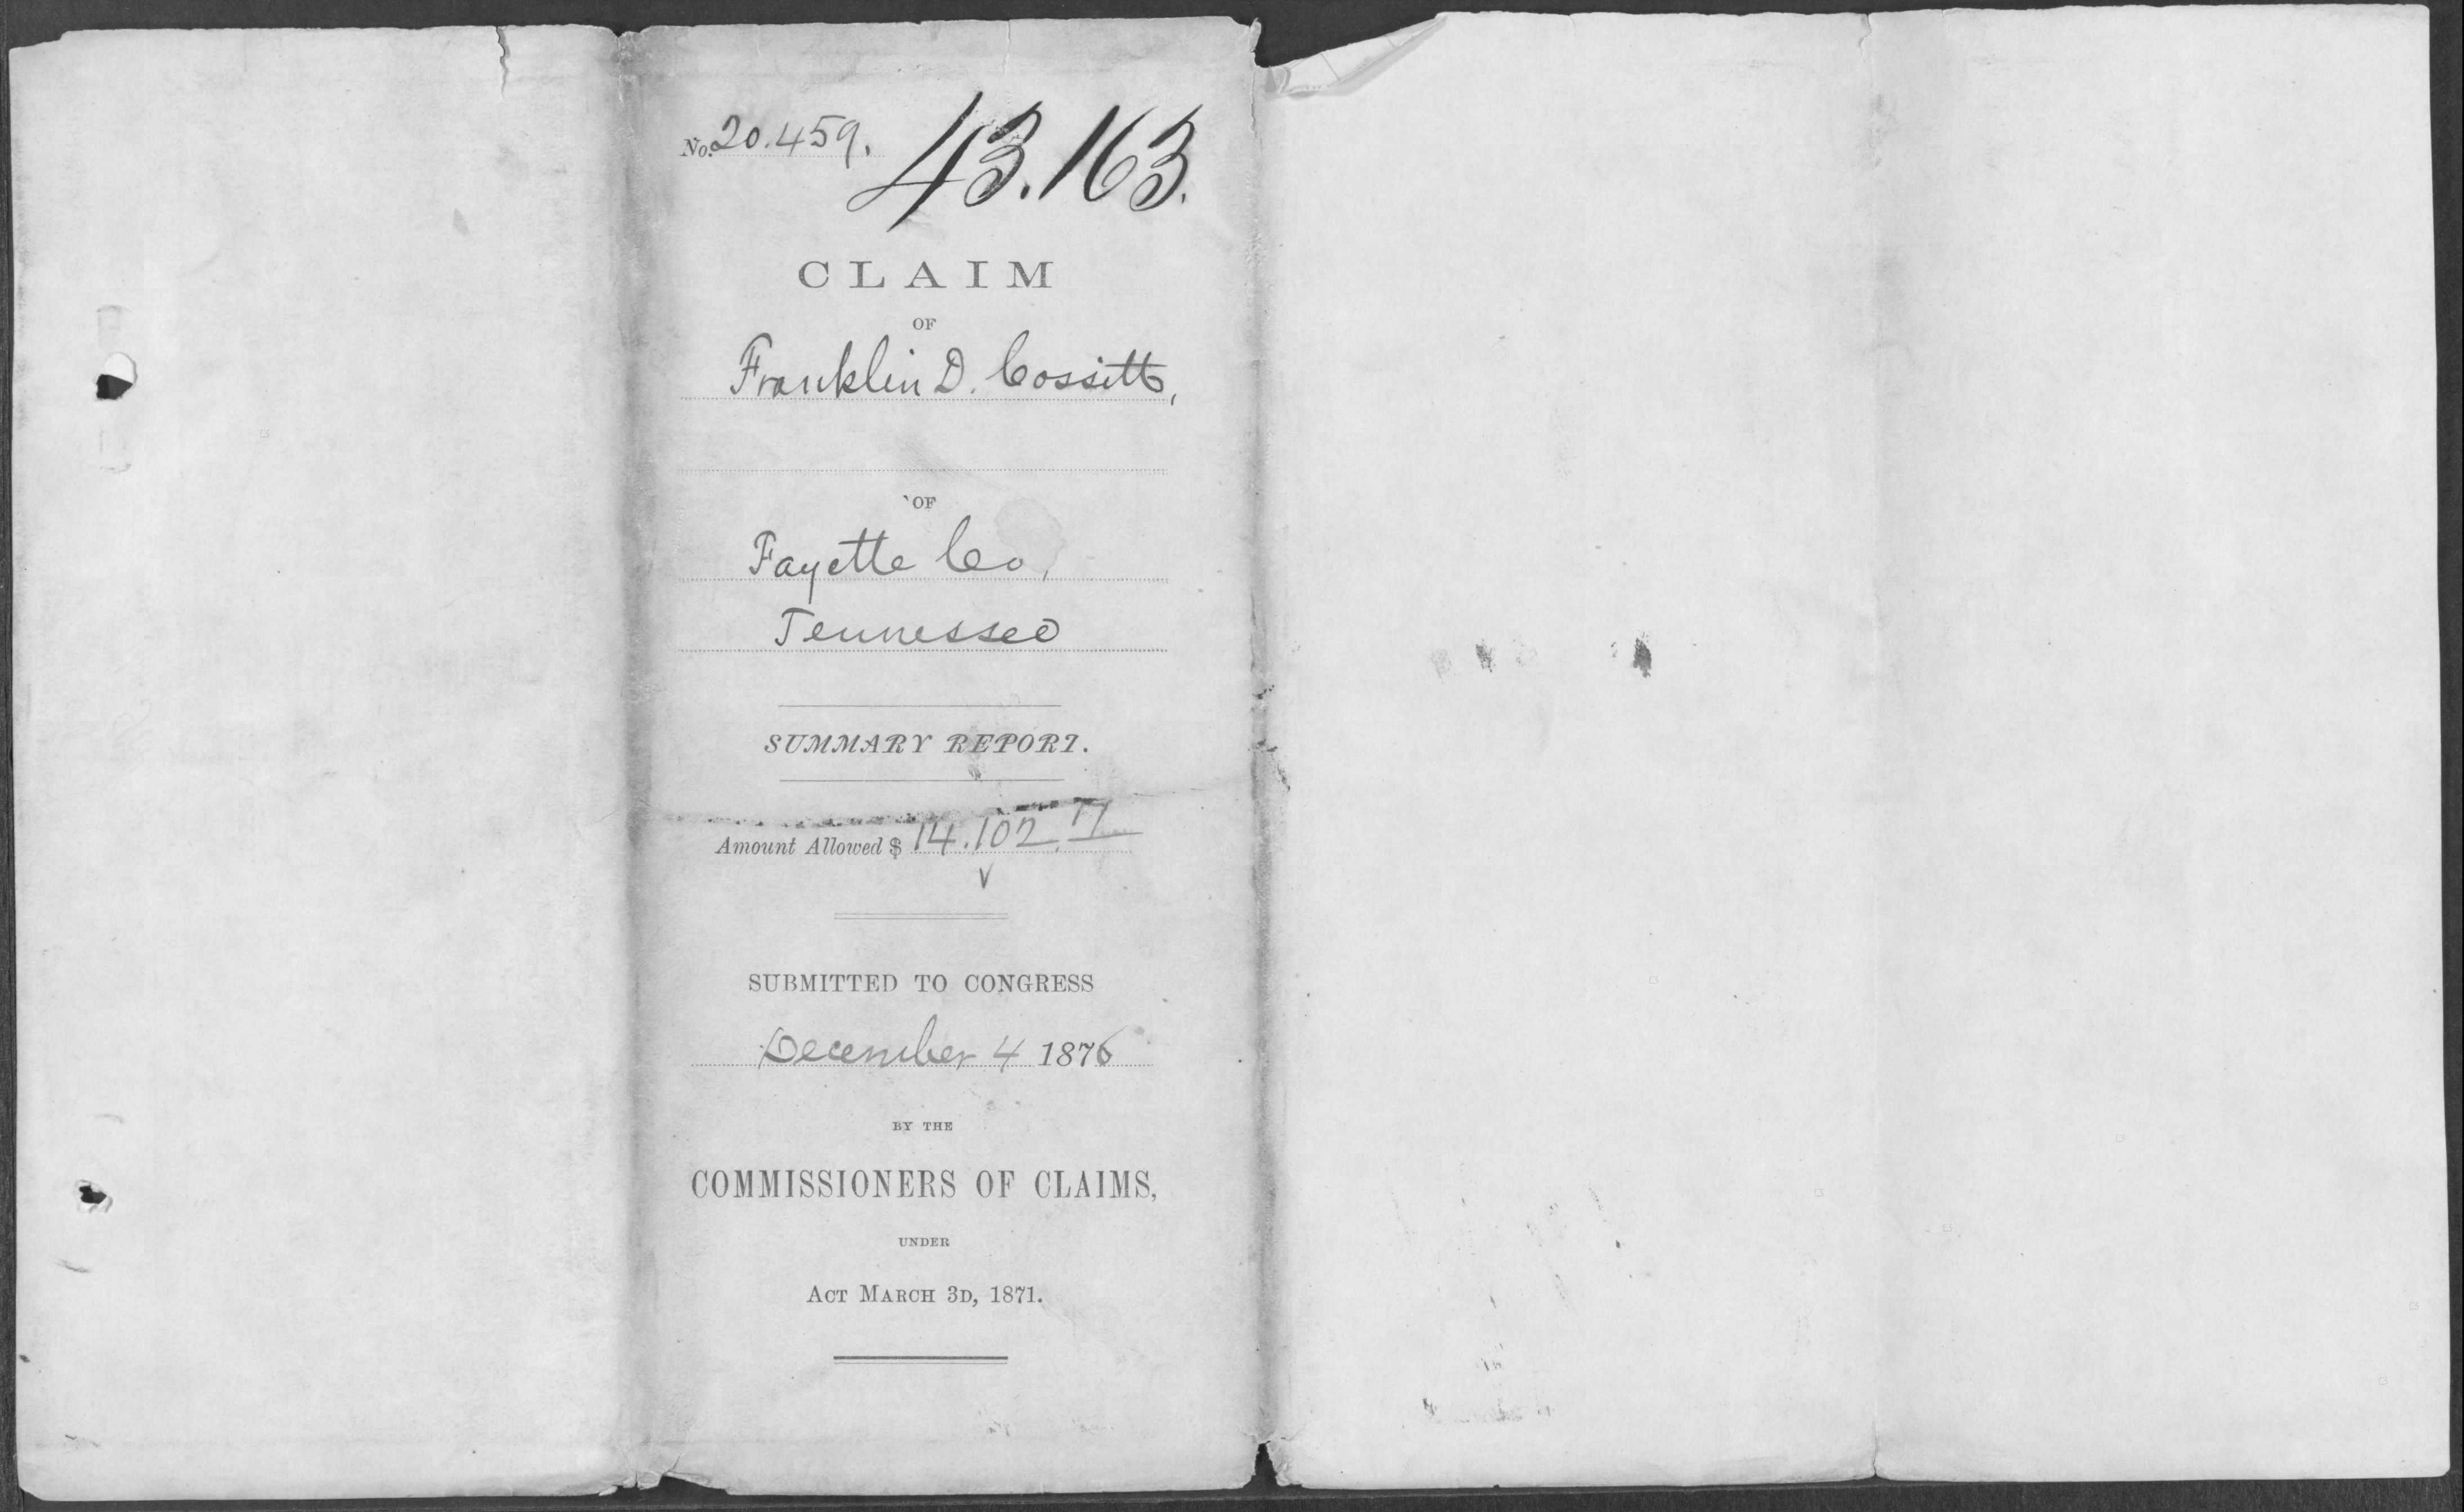 No. 20.459.
43.163.
CLAIM
OF
Franklin D. Cossitt,
OF
Fayette Co,
Tennessee
SUMMARY REPORT.
Amount Allowed $ 14.102.77
SUBMITTED TO CONGRESS
December 4 1876
BY THE
COMMISSIONERS OF CLAIMS,
UNDER
ACT MARCH 3D, 1871.